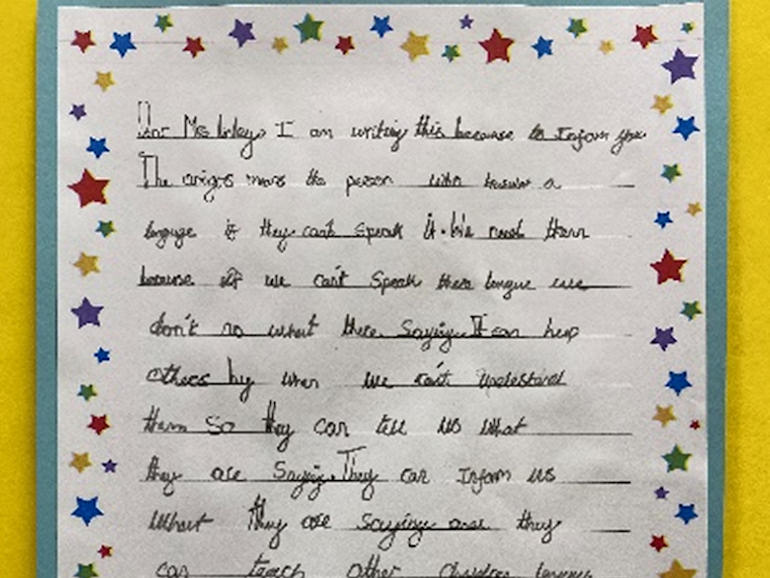 I am writing this because to Inform you
The means the person who knows a
languge if they cant speak it. We need them
because if we can't speak there longue we
don't no what there saying. It can help
others by when we can't understand
them so they can tell us what
they are saying. They can Inform us
what they are saying and they
can teach other children languge